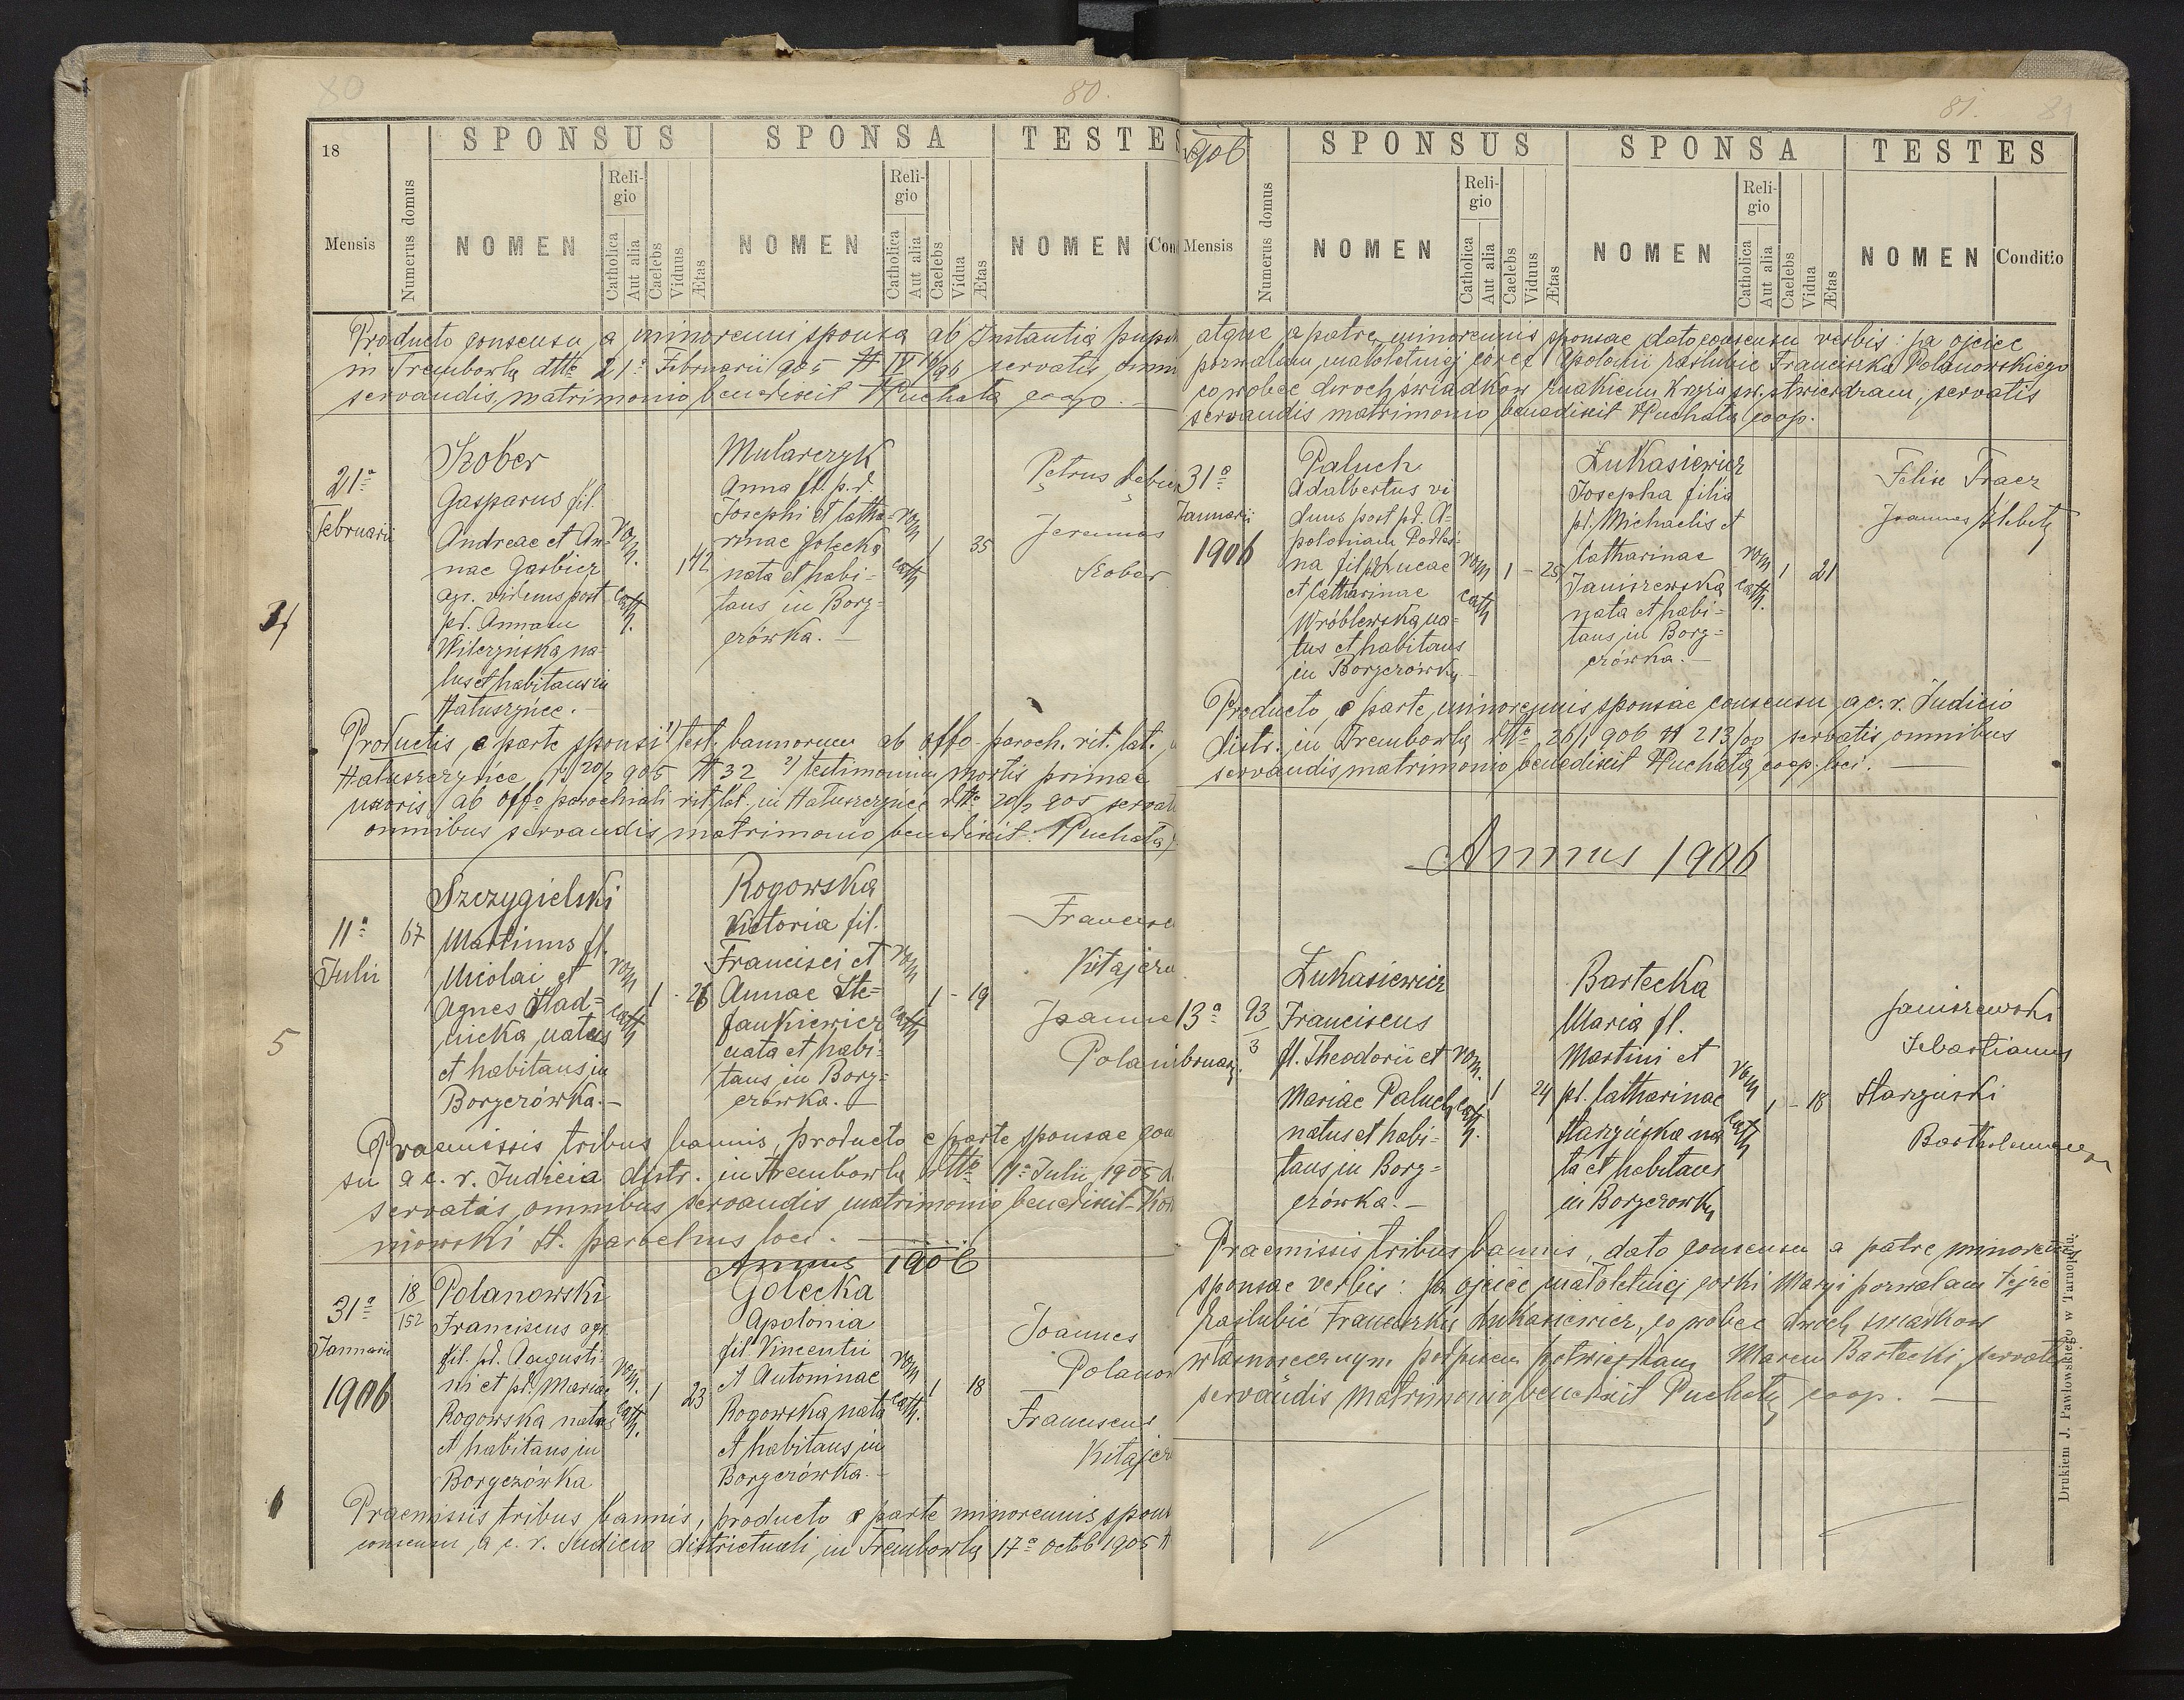 80
80.
18
SPONSUS
SPONSA
TESTES
Mensis
Numerus domus
NOMEN
Religio
Catholica
Aut alia
Caelebs
Viduus
Ætas
NOMEN
Religio
Catholica
Aut alia
Caelebs
Vidua
Ætas
NOMEN
Con
Producto consensu a minorenni sponsa ab Instantia pupi
in Trembowla dtto 21a Februarii 905 servatis omni
servandis, matrimonio benedixit Puchała coop.
21a
Februarii
Kober
Gasparus fil.
Andreae et An-
nae Garbicz
agr. viduus post
pd. Annam
Wilczyńska na-
tus et habitans in
Hałuszczyńce.
rom.
cath.
1 42
Mularczyk
Anna fil. p.d.
Josephi et Catha-
rinae Golecka
nata et habi-
tans in Borg-
czówka.
rom
cath
1 35
Petrus
Jeremias
Kober
34
Productis e parte sponsi 1) test. bannorum ab offo paroch. rit. lat.
Hałuszczyńce 20/2 905 N 32 2) testimonium mortis primae
uxoris ab offo parochiali rit. lat. in Hałuszczyńce dtto 20/2 905 servat
omnibus servandis matrimonio benedixit Puchała
11a
Julii
67
Szczygielski
Martinus fl.
Nicolai et
Agnes Had-
nicka natus
et habitans in
Borgczówka.
rom
cath
1 - 26
Rogowska
Victoria fil.
Francisci et
Annae Ste-
fankiewicz
nata et habi-
tans in Borg-
czówka.
rom
cath
1 - 19
Francisc
Kitajczu
Joanne
Polan
5
Praemissis tribus bannis, producto e parte sponsae con
su a c. r. Judicio distr. in Trembowla dtto 11a Julii 1905
servatis omnibus servandis matrimonio benedixit
niowski St. parochus loci.
Annus 1906
31a
Januarii
1906
18
152
Polanowski
Franciscus agr.
fil. pd. Augusti-
ni et pd. Mariae
Rogowska natus
et habitans in
Borgczówka
rom.
cath.
1 23
Golecka
Apolonia
fil. Vincentii
et Antoninae
Rogowska nata
et habitans in
Borgczówka.
rom
cath.
1 18
Joannes
Polanow
Franciscus
Kitajczu
6
Praemissis tribus bannis, producto e parte minorennis spons
consensu a c. r. Judicio districtuali in Trembowla 17a Octob 1905 N
81.
906
SPONSUS
SPONSA
TESTES
Mensis
Numerus domus
NOMEN
Religio
Catholica
Aut alia
Caelebs
Viduus
Ætas
NOMEN
Religio
Catholica
Aut alia
Caelebs
Vidua
Ætas
NOMEN
Conditio
atque a patre minorennis sponsae dato consensu verbis: ja ojciec
pozwalam małoletniej córce Apolonii zaślubić Franciszka Polanowskiego
co wobec dwóch świadków znakiem Krzyża św. stwierdzam, servatis
servandis matrimonio benedixit Puchała coop.
31a
Januarii
1906
Paluch
Adalbertus vi
duus post pd. A-
poloniam Podlesi-
na fil. pd. Lucae
et Catharinae
Wróblewska na-
tus et habitans
in Borgczówka.
rom
cath
1 - 25
Łukasiewicz
Josepha filia
pd. Michaelis et
Catharinae
Janiszewska
nata et habi-
tans in Borg-
czówka.
rom
cath.
1 21
Felix Tracz
Joannes
Producto e parte minorennis sponsae consensu a c. r. Judicio
distr. in Trembowla dtto 26/1 906 N 213/00 servatis omnibus
servandis matrimonio benedixit Puchała coop. loci.
Annus 1906
13a
bruar.
93
3
Łukasiewicz
Franciscus
fl. Theodorii et
Mariae Paluch
natus et habi-
tans in Borg-
czówka.
rom.
cath.
1 24
Bartecka
Maria fl.
Martini et
pd. Catharinae
Starzyńska na
ta et habitans
in Borgczówka
rom
cath
1 - 18
Janiszewski
Sebastianus
Starzyński
Bartholomaeus
Praemissis tribus bannis, dato consensu a patre minorennis
sponsae verbis: ja ojciec małoletniej córki Maryi pozwalam tejże
zaślubić Franciszka Łukasiewicz, co wobec dwóch świadków
własnoręcznym podpisem potwierdzam Marcin Bartecki, servatis
servandis matrimonio benedixit Puchała coop.
Drukiem J. Pawłowskiego w Tarnopolu.